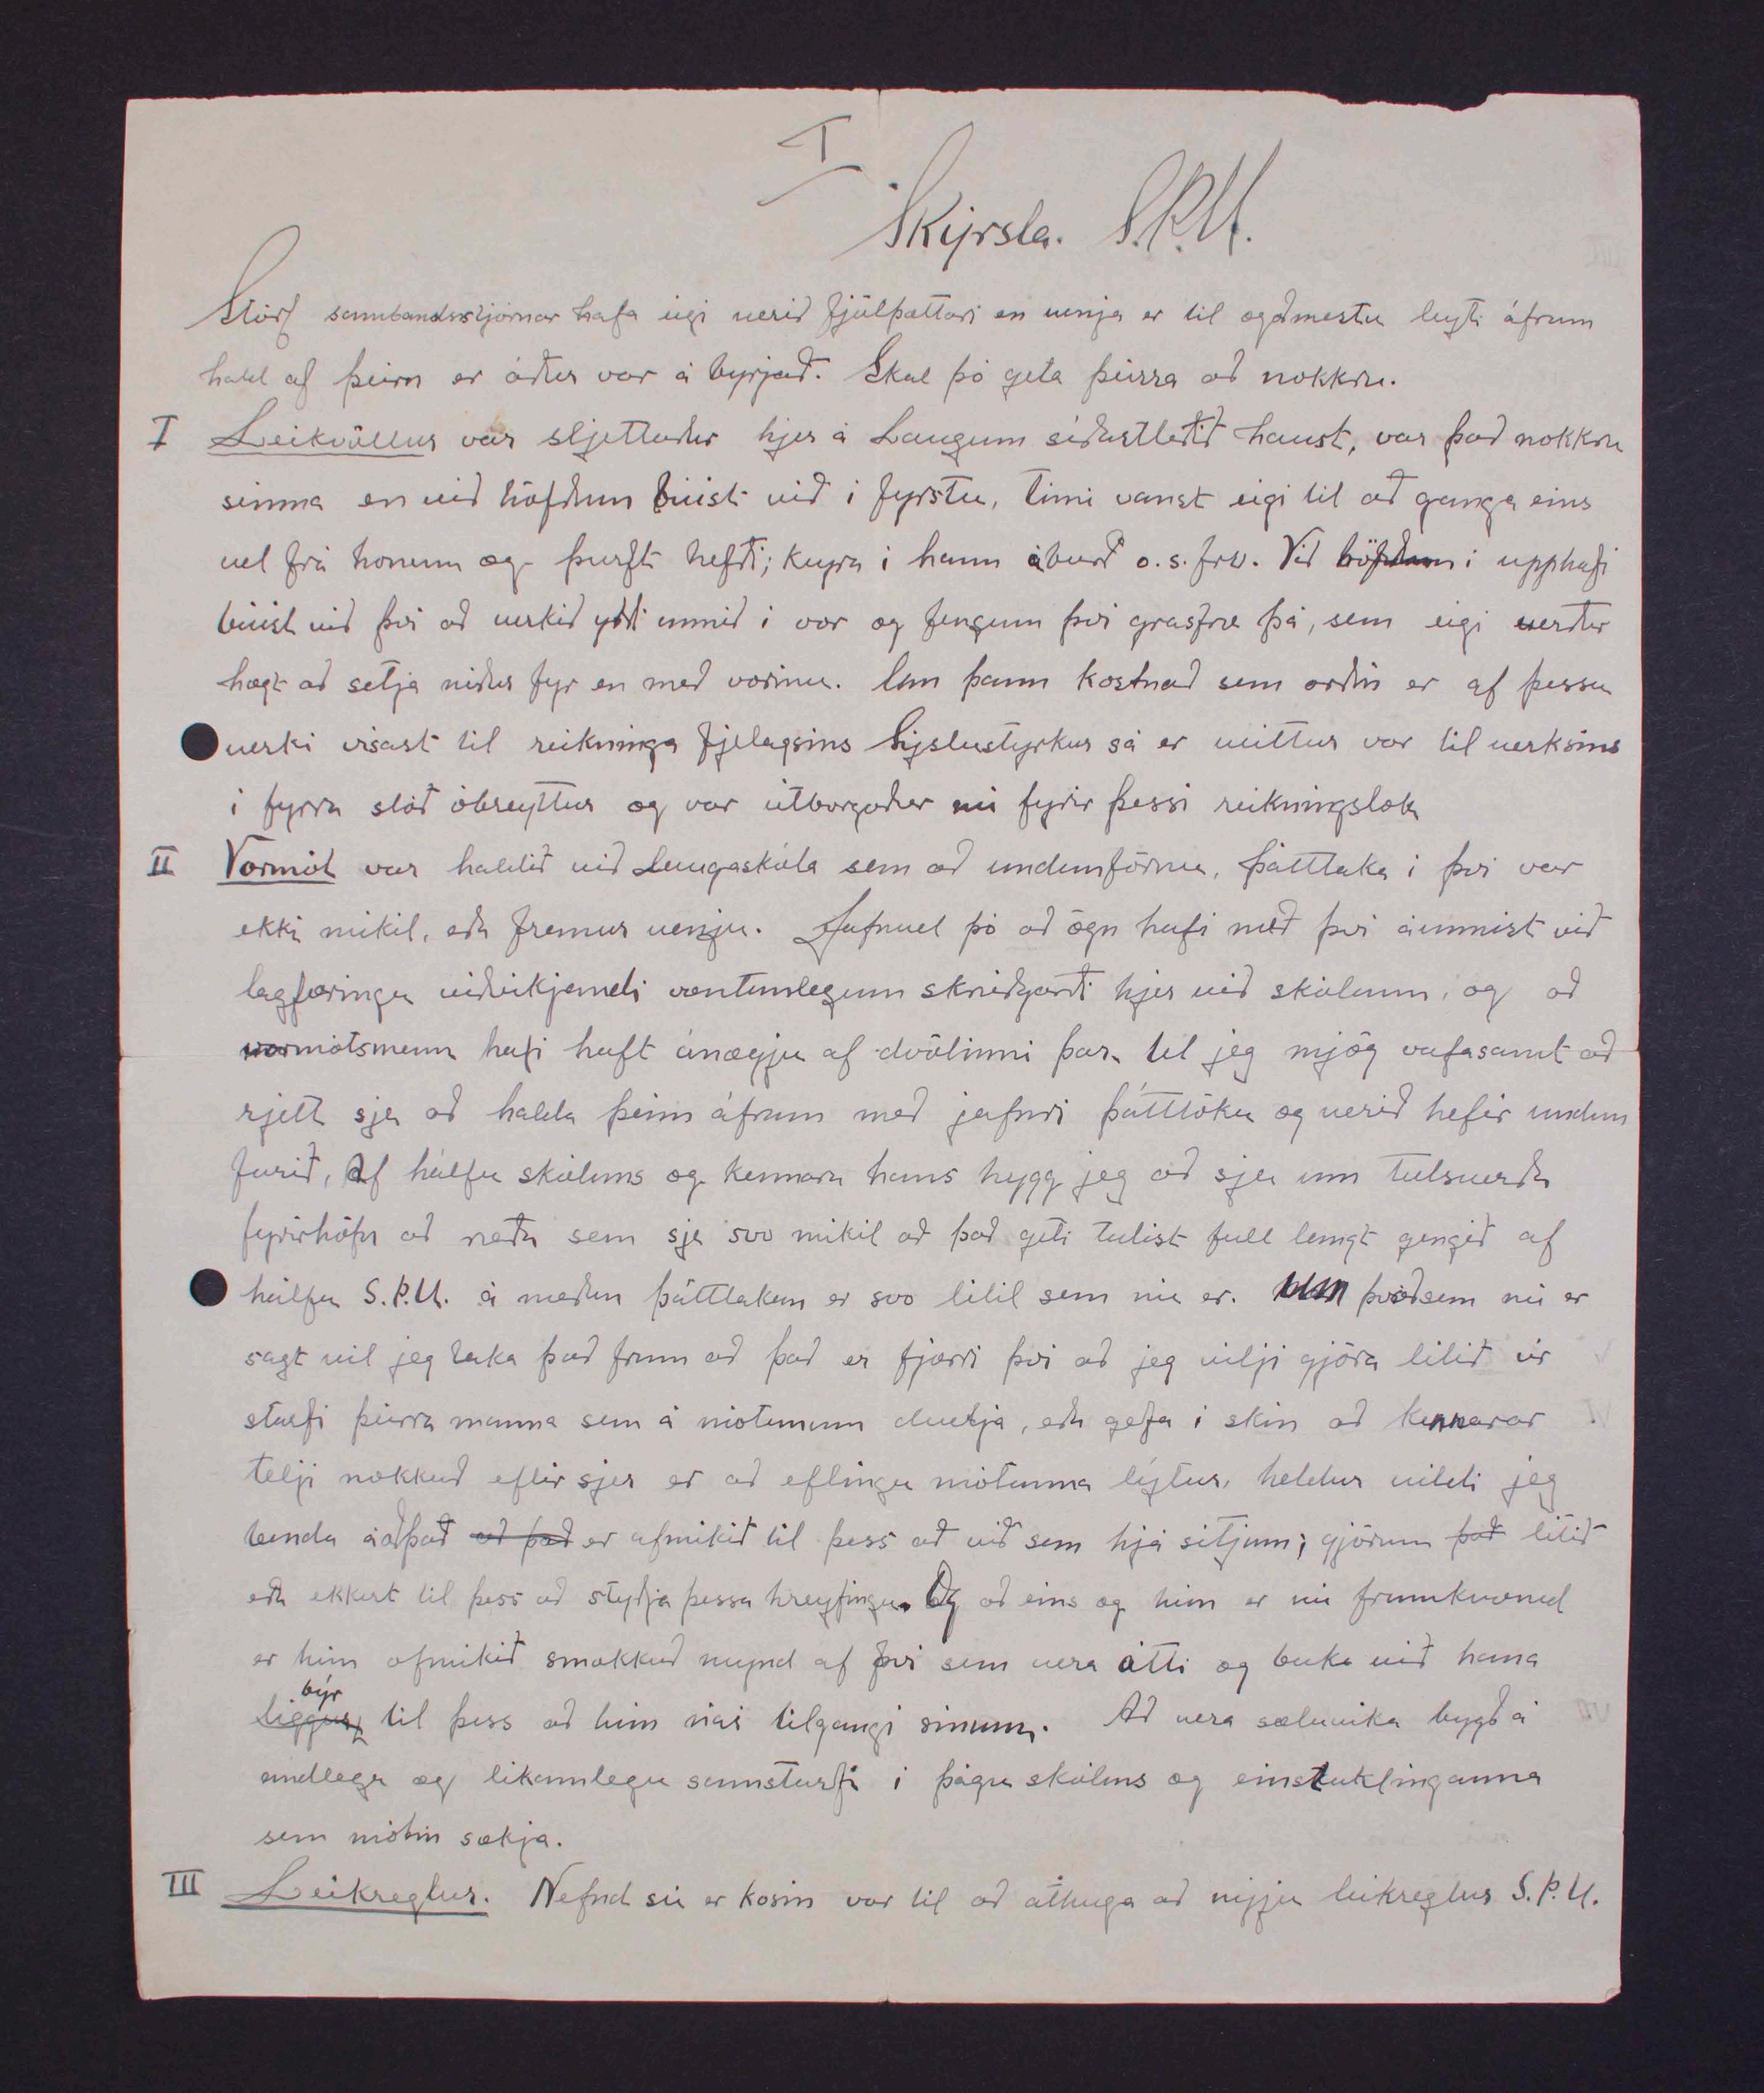 I
Skýrsla. S.Þ.U.
Störf sambandsstjórnar hafa eigi verið fjölþættari en venja er til og að mestu leyti áfram
hald af þeim er áður var á byrjað. Skal þó geta þeirra að nokkru.
I Leikvöllur var sljettaður hjer á Laugum síðastleðið haust, var það nokkru
sinna en við höfðum búist við í fyrstu, tími vanst eigi til að ganga eins
vel frá honum og þurft hefði; keyra í hann áburð o.s.frv. Við höfðum í upphafi
búist við því að verkið yrði unnið í vor og fengum því grasfræ þá, sem eigi verður
hægt að setja niður fyr en með vorinu. Um þann kostnað sem orðin er af þessu
verki vísast til reikninga fjelagsins Sýslustyrkur sá er veittur var til verksins
í fyrra stóð óbreyttur og var útborgaður nú fyrir þessi reikningslok
II Vormót var haldið við Laugaskóla sem að undanförnu, þátttaka í því var
ekki mikil, eða fremur venju. Jafnvel þó að ögn hafi með því áunnist við
lagfæringu viðvíkjandi væntanlegum skrúðgarði hjer við skólann, og að
vormótsmenn hafi haft ánægju af dvölinni þar, tel jeg mjög vafasamt að
rjett sje að halda þeim áfram með jafnri þátttöku og verið hefir undan
farið, Af hálfu skólans og kennara hans hygg jeg að sje um talsverða
fyrirhöfn að ræða sem sje svo mikil að það geti talist full langt gengið af
hálfu S.Þ.U. á meðan þátttakan er svo lítil sem nú er. Um það sem nú er
sagt vil jeg taka það fram að það er fjærri því að jeg vilji gjöra lítið úr
starfi þeirra manna sem á mótunum dvelja, eða gefa í skin að kennarar
telji nokkuð eftir sjer er að eflingu mótanna lýtur, heldur vildi jeg
benda á að það að það er ofmikið til þess að við sem hjá sitjum; gjörum það lítið
eða ekkert til þess að styðja þessa hreyfingu. Og að eins og hún er nú framkvæmd
er hún ofmikið smækkuð mynd af því sem vera ætti og beka við hana
býr
liggur til þess að hún nái tilgangi sínum. Að vera sæluvika bygð á
andlegu og líkamlegu samstarfi í þágu skólans og einstaklinganna
sem mótin sækja.
III Leikreglur. Nefnd sú er kosin var til að athuga að nýju leikreglur S.Þ.U.